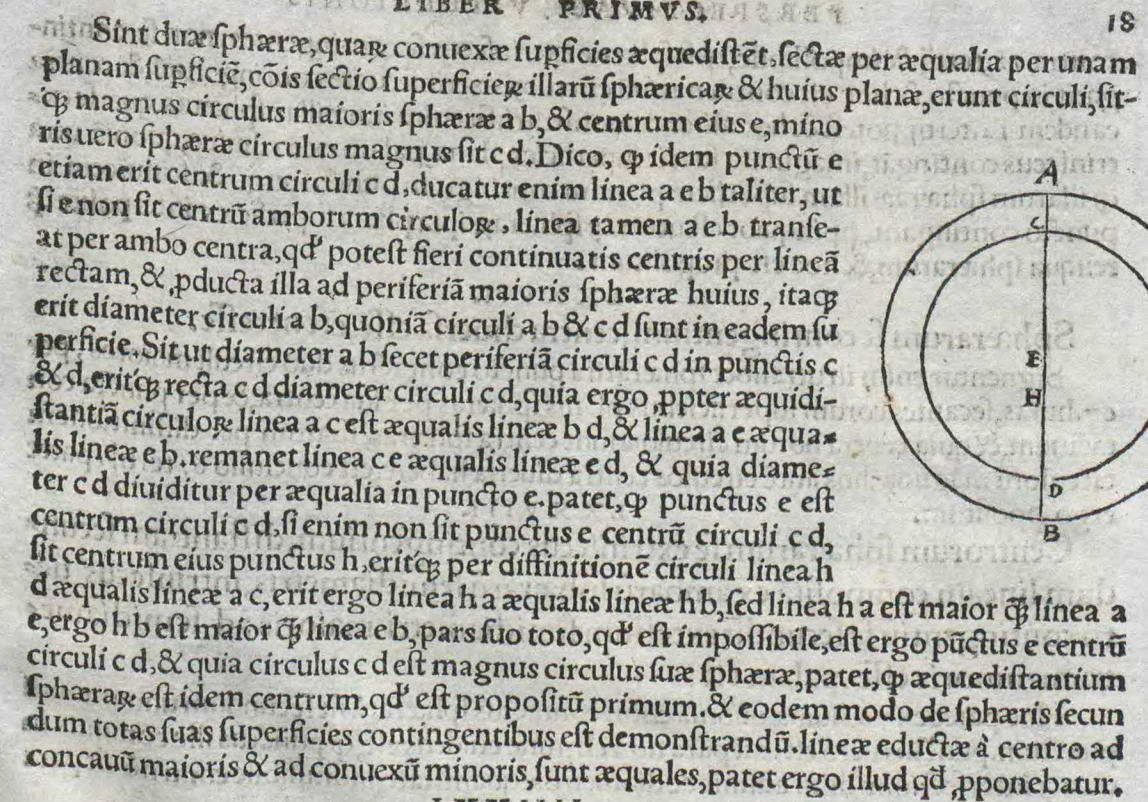 LIBER PRIMVS.
18
Sint duæ ſphæræ,quaꝝ conuexæ ſupficies æquediſtēt,ſectæ per æqualia per unam
planam ſupficiē,cōis ſectio ſuperficieꝝ illarū ſphæricaꝝ & huius planæ,erunt circuli,ſit-
qꝫ magnus circulus maioris ſphæræ a b,& centrum eius e,mino
ris uero ſphæræ circulus magnus ſit c d.Dico, ꝙ idem punctū e
etiam erit centrum circuli c d,ducatur enim linea a e b taliter, ut
ſi e non ſit centrū amborum circuloꝝ, linea tamen a e b tranſe-
at per ambo centra,qd' poteſt fieri continuatis centris per lineā
rectam,& ꝓducta illa ad periferiā maioris ſphæræ huius, itaqꝫ
erit diameter circuli a b,quoniā circuli a b & c d ſunt in eadem ſu
perficie.Sit ut diameter a b ſecet periferiā circuli c d in punctis c
& d,eritqꝫ recta c d diameter circuli c d,quia ergo ꝓpter æquidi-
ſtantiā circuloꝝ linea a c eſt æqualis lineæ b d,& linea a e æqua-
lis lineæ e b.remanet linea c e æqualis lineæ e d, & quia diame-
ter c d diuiditur per æqualia in puncto e.patet,ꝙ punctus e eſt
centrum circuli c d,ſi enim non ſit punctus e centrū circuli c d,
ſit centrum eius punctus h,eritqꝫ per diffinitionē circuli linea h
d æqualis lineæ a c,erit ergo linea h a æqualis lineæ h b,ſed linea h a eſt maior q̄ꝫ linea a
e,ergo h b eſt maior q̄ꝫ linea e b,pars ſuo toto,qd' eſt impoſſibile,eſt ergo pūctus e centrū
circuli c d,& quia circulus c d eſt magnus circulus ſuæ ſphæræ,patet,ꝙ æquediſtantium
ſphæraꝝ eſt idem centrum,qd' eſt propoſitū primum.& eodem modo de ſphæris ſecun
dum totas ſuas ſuperficies contingentibus eſt demonſtrandū.lineæ eductæ à centro ad
concauū maioris & ad conuexū minoris,ſunt æquales,patet ergo illud qd̄ ꝓponebatur.
A
C
E
H
D
B